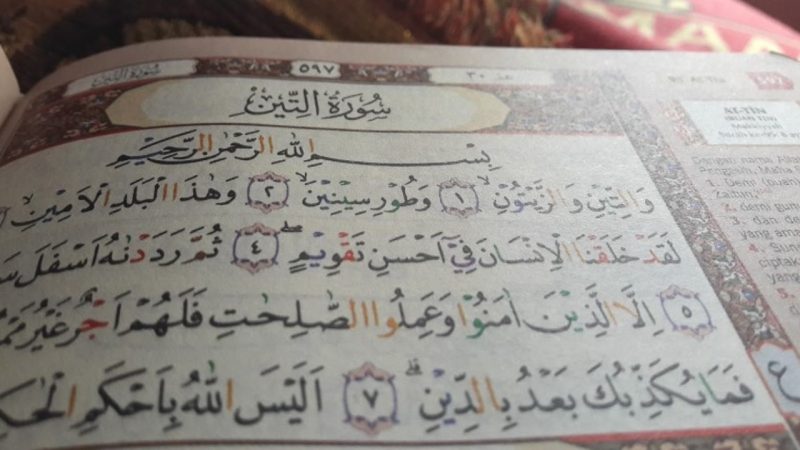 سُورَةُ التِّيْنِ ٥٩٧ جز ٣٠
سُورَةُ التِّيْنِ
بِسْمِ اللّٰهِ الرَّحْمٰنِ الرَّحِيْمِ
وَالتِّيْنِ وَالزَّيْتُوْنِۙ ١ وَطُوْرِ سِيْنِيْنَۙ ٢ وَهٰذَا الْبَلَدِ الْاَمِيْنِۙ
لَقَدْ خَلَقْنَا الْاِنْسَانَ فِيْٓ اَحْسَنِ تَقْوِيْمٍۖ ٤ ثُمَّ رَدَدْنٰهُ اَسْفَلَ
٥ اِلَّا الَّذِيْنَ اٰمَنُوْا وَعَمِلُوا الصّٰلِحٰتِ فَلَهُمْ اَجْرٌ غَيْرُ
فَمَا يُكَذِّبُكَ بَعْدُ بِالدِّيْنِۗ ٧ اَلَيْسَ اللّٰهُ بِاَحْكَمِ
ع
AT-TĪN
(BUAH TIN)
Makkiyyah
Dengan nama Alla
Pengasih, Maha P
1. Demi (buah)
2. demi gun
3. dan de
yang ama
4. Sung
cipta
yang
5.